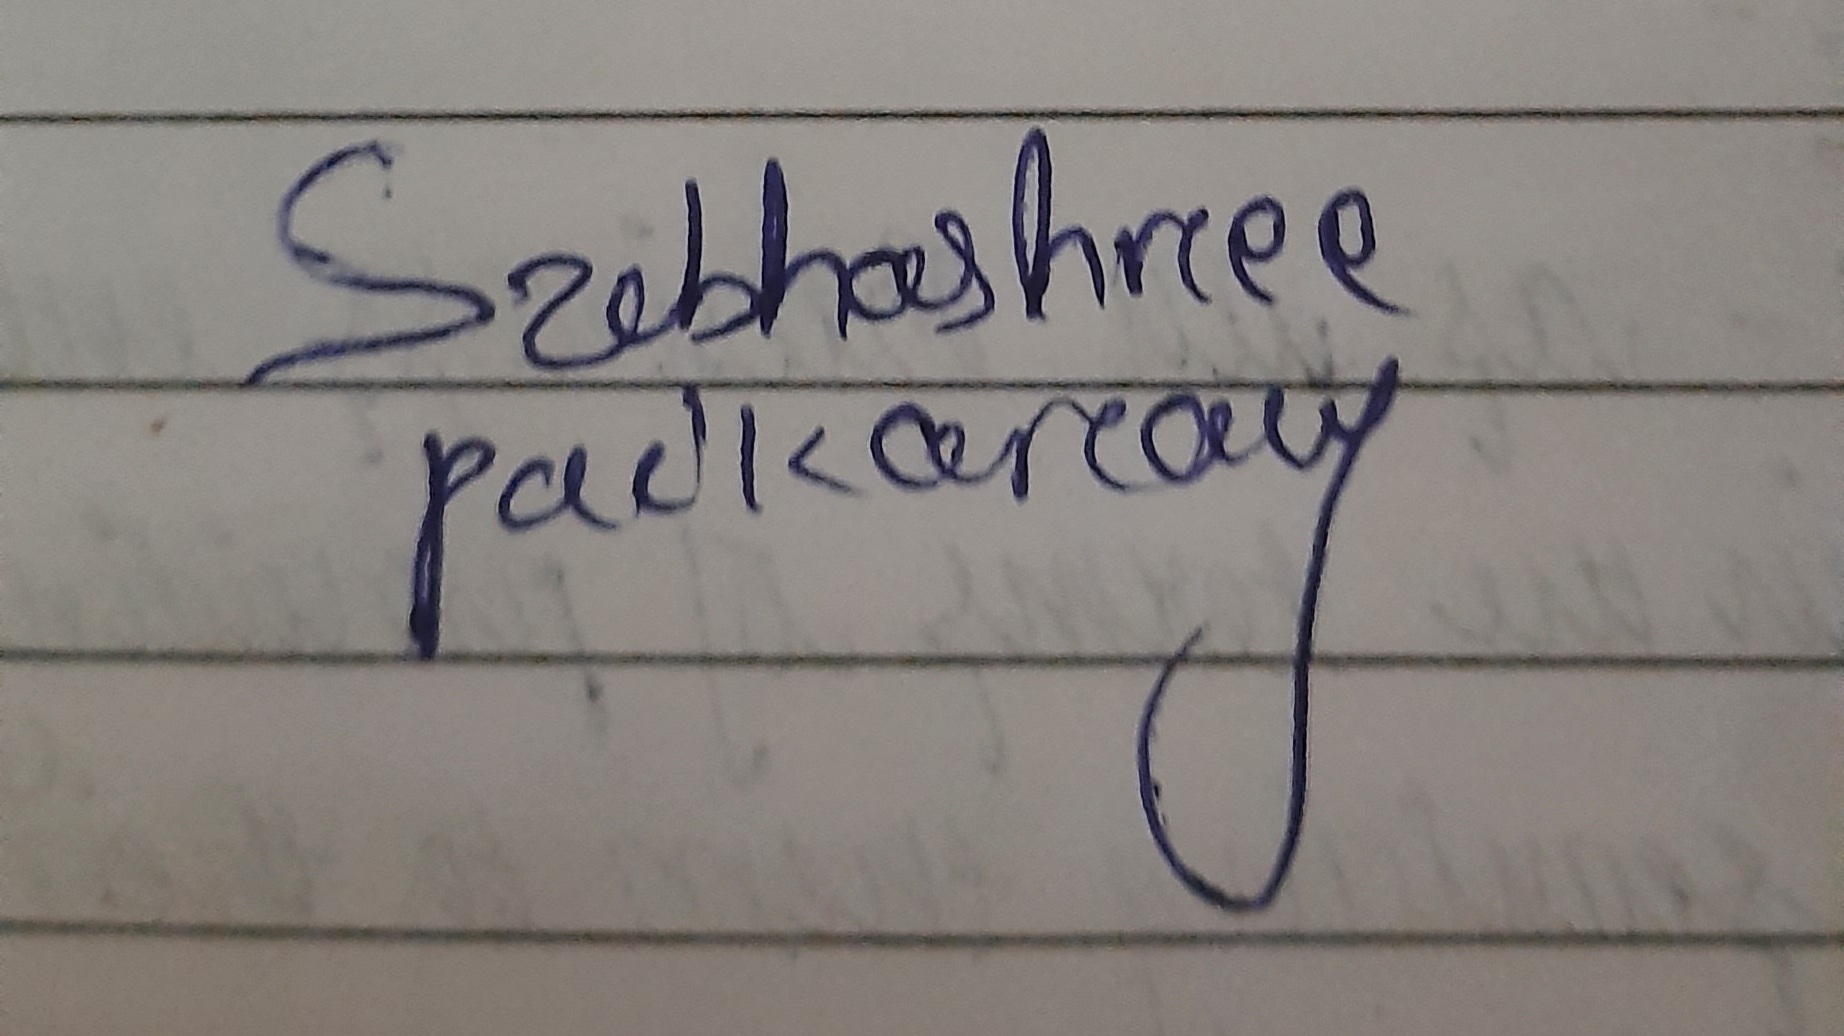 Subhashree
paikaray